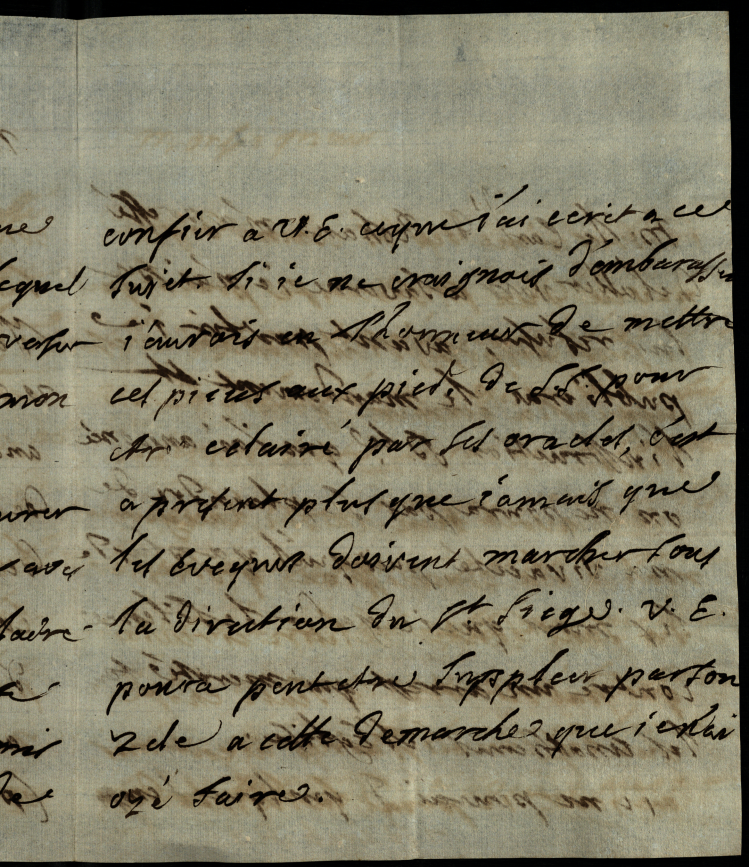 confier a V. E. ceque j'ai ecrit a ce
sujet. Si je ne craignois d'embarasser
j'aurois eu l'honneur de mettre
ces pieces aux pieds de S. S. pour
etre eclairé par ses oracles, c'est
a present plus que jamais que
les Eveques doivent marcher sous
la direction du St. Siege. V. E.
poura peut etre suppleer par son
zele a cette demarche que je n'ai
ozé faire.
ne
lequel
mon
urer
avec
a
mis
de